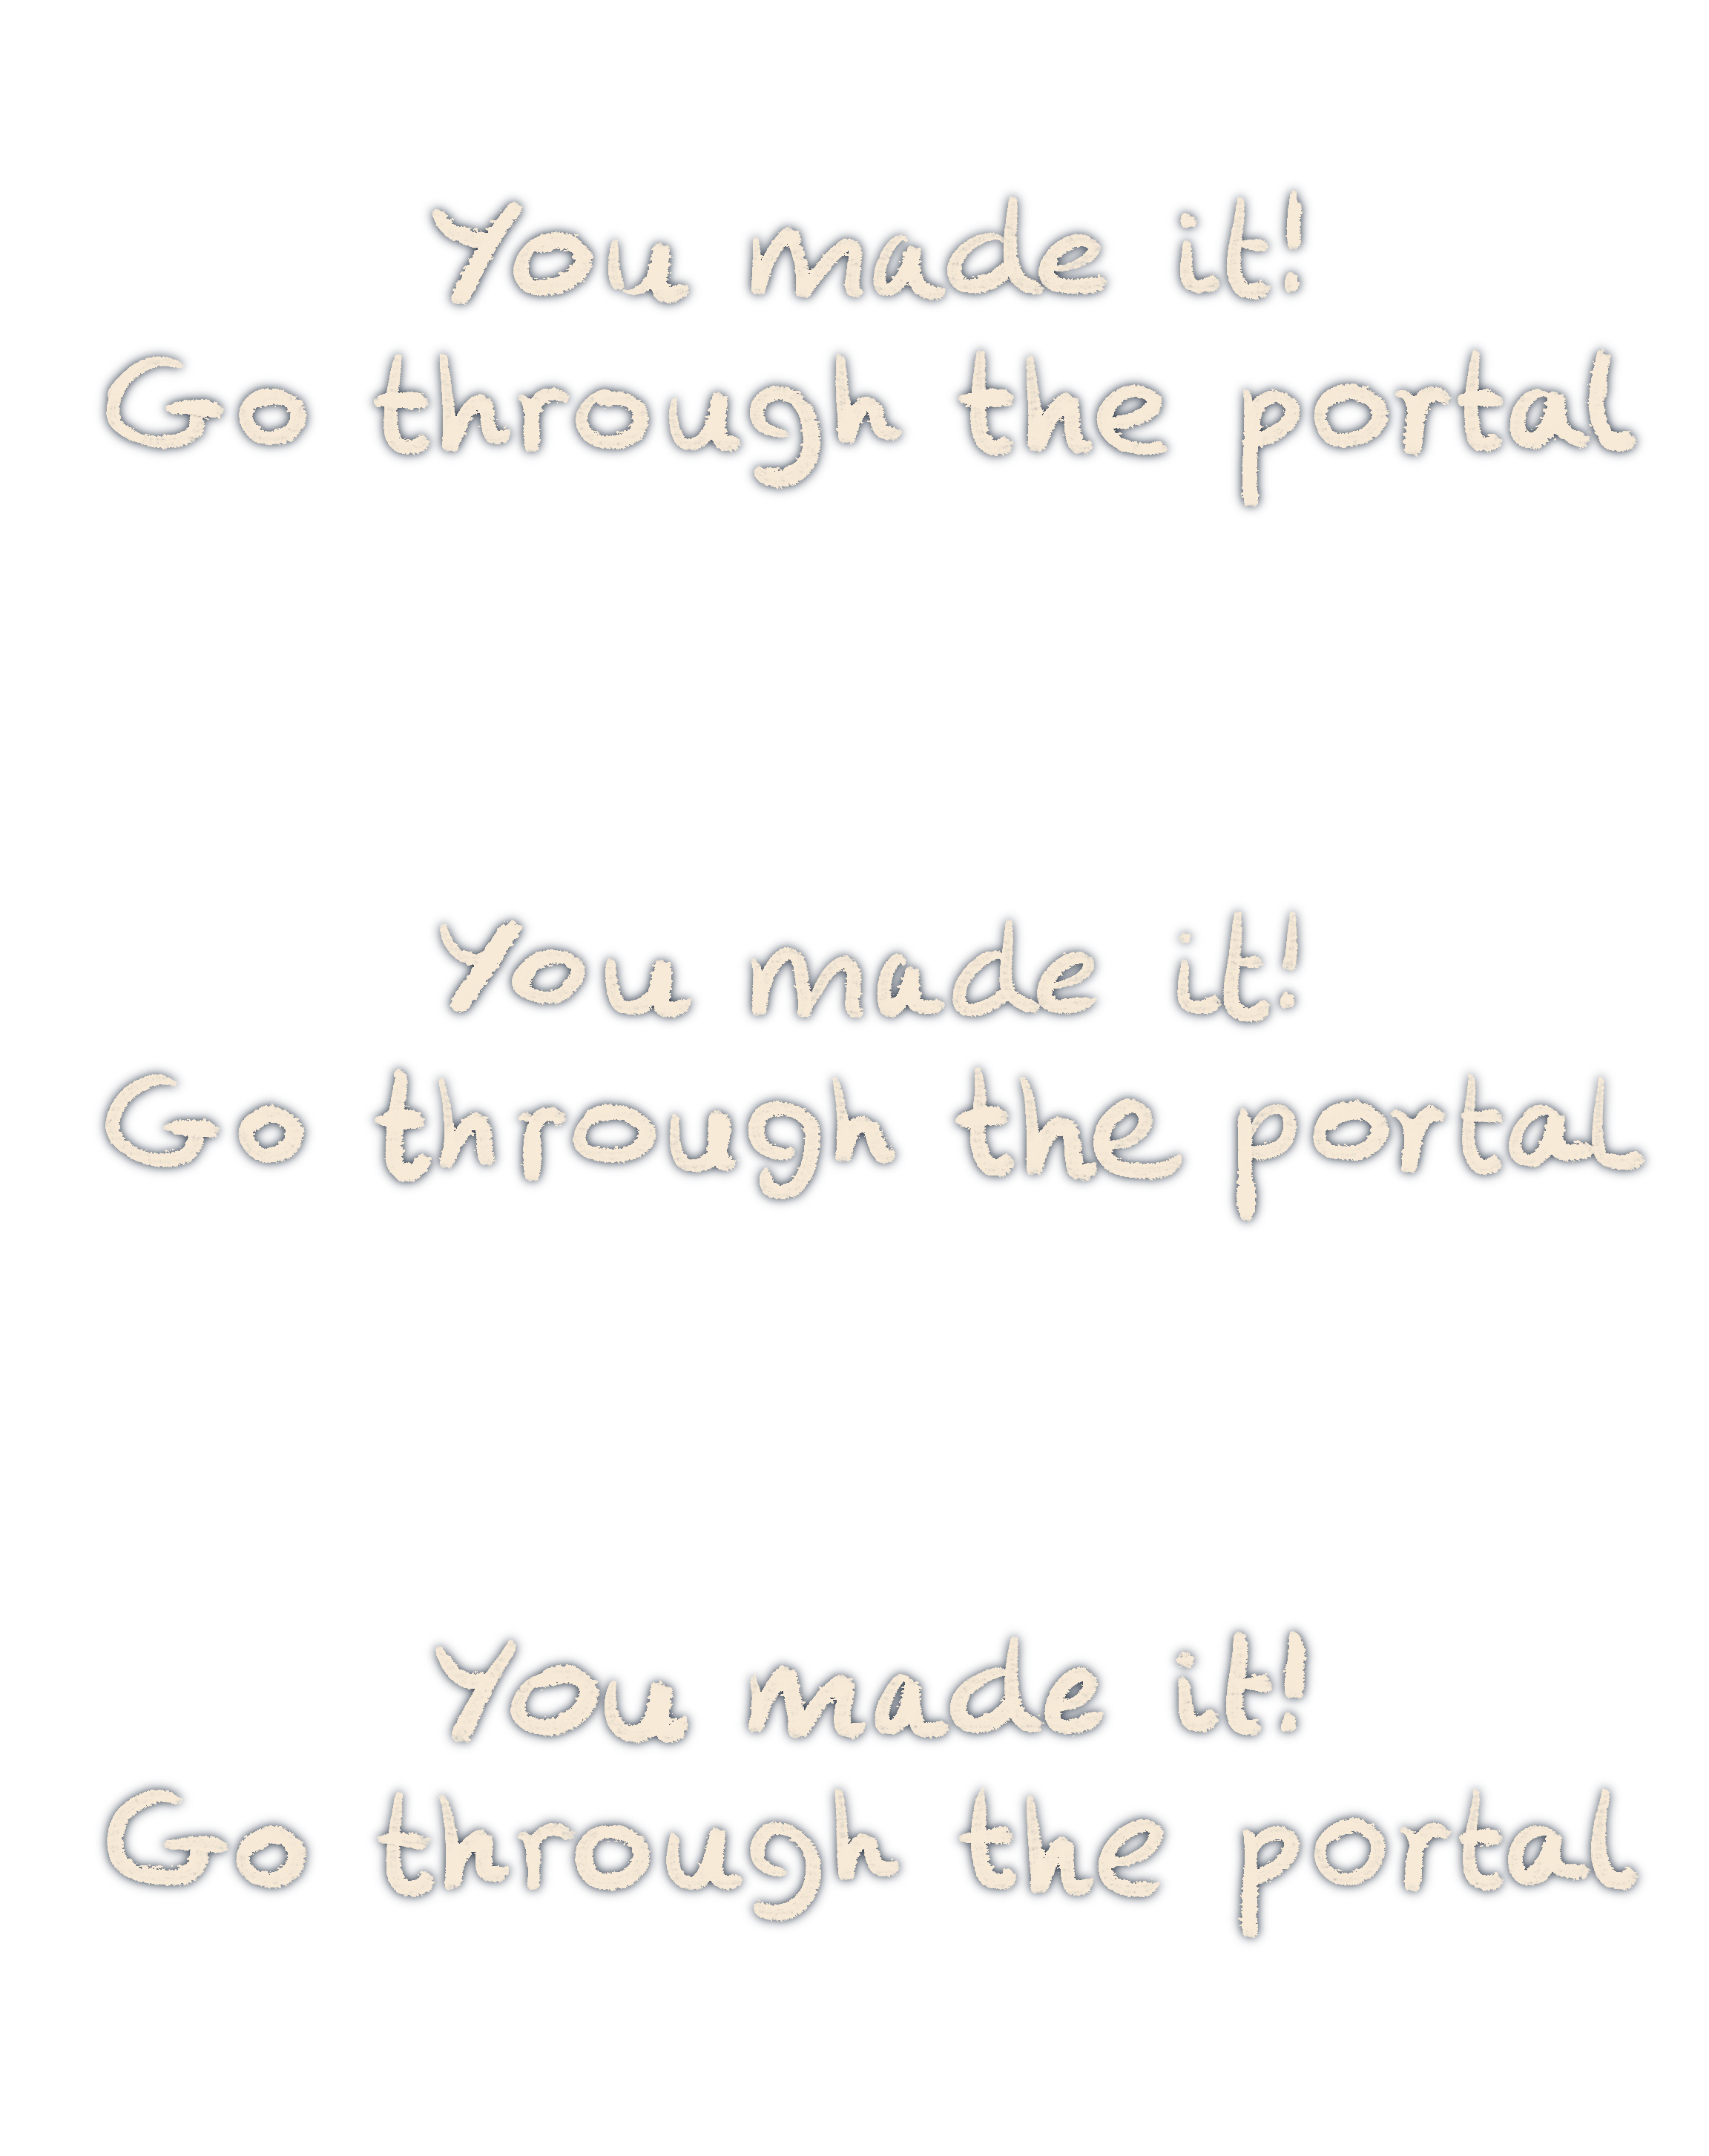 You made it!
Go through the portal
You made it!
Go through the portal
You made it!
Go through the portal